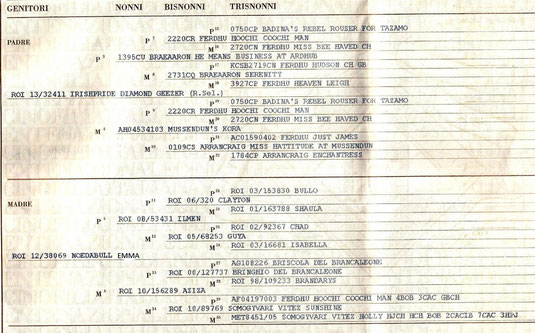 GENITORI NONNI BISNONNI TRISNONNI
P 0750CP BADINA'S REBEL ROUSER FOR TAZAMO
PADRE
P 2220CR FERDHU HOOCHI COOCHI MAN
M 2720CN FERDHU MISS BEE HAVED CH
P 1395CU BRAEAARON HE MEANS BUSINESS AT ARDHUB
P KCSB2719CN FERDHU HUDSON CH GB
M 2731CQ BRAEAARON SERENITY
M 3927CP FERDHU HEAVEN LEIGH
ROI 13/32411 IRISHPRIDE DIAMOND GEEZER (R.Sel.)
P 0750CP BADINA'S REBEL ROUSER FOR TAZAMO
P 2220CR FERDHU HOOCHI COOCHI MAN
M 2720CN FERDHU MISS BEE HAVED CH
M AH04534103 MUSSENDUN'S KORA
P AC01590402 FERDHU JUST JAMES
M 0109CS ARRANCRAIG MISS HATTITUDE AT MUSSENDUN
M 1784CP ARRANCRAIG ENCHANTRESS
P ROI 03/153830 BULLO
MADRE
P ROI 06/320 CLAYTON
M ROI 01/163788 SHAULA
P ROI 08/53431 ILMEN
P ROI 02/92367 CHAD
M ROI 05/68253 GUYA
M ROI 03/16681 ISABELLA
ROI 12/38069 NOEDABULL EMMA
P AG108226 BRISCOLA DEL BRANCALEONE
P ROI 00/127737 BRINGHIO DEL BRANCALEONE
M ROI 98/109233 BRANDARYS
M ROI 10/156289 AZIZA
P AF04197003 FERDHU HOOCHI COOCHI MAN 4BOB 3CAC GBCH
M ROI 10/89769 SOMOGYVARI VITEZ SUNSHINE
M MET8451/05 SOMOGYVARI VITEZ HOLLY HJCH HCH BOB 2CACIB 7CAC 3HDJ